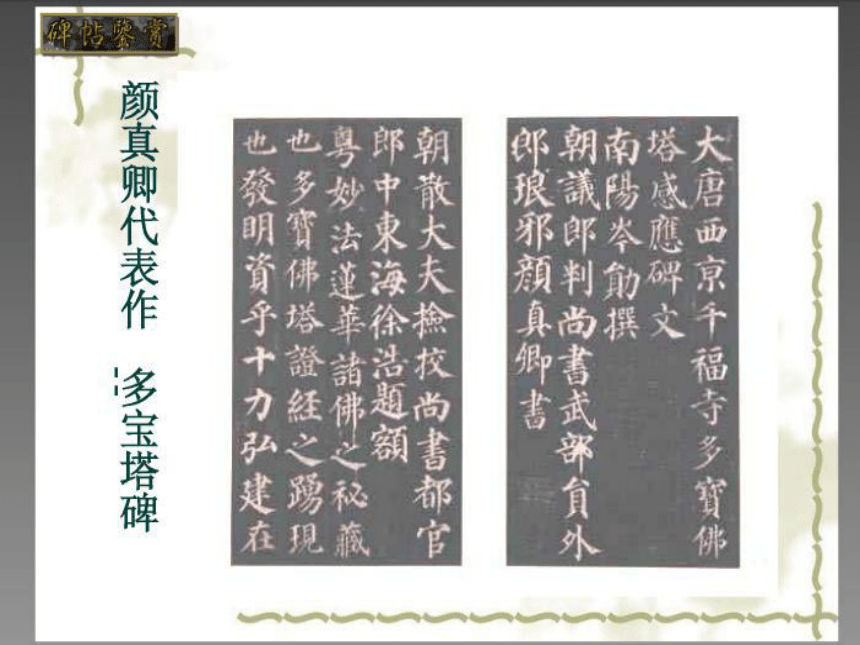 碑帖鑒賞
颜真卿代表作：多宝塔碑
大唐西京千福寺多寶佛
塔感應碑文
南陽岑勛撰
朝議郎判尚書武部員外
郎琅邪顏真卿書
朝散大夫撿校尚書都官
郎中東海徐浩題額
粤妙法蓮華諸佛之祕藏
也多寶佛塔證經之踴現
也發明資乎十力弘建在